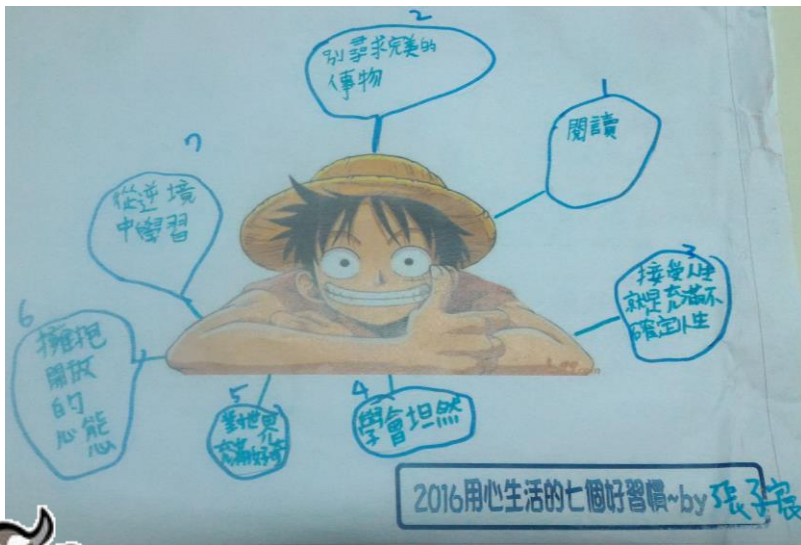 1
閱讀
2
別尋求完美的
事物
3
接受人生
就是充滿不
確定性
4
學會坦然
5
對世界
充滿好奇
6
擁抱
開放
的
心態
7
從逆境
中學習
2016用心生活的七個好習慣~by 張子